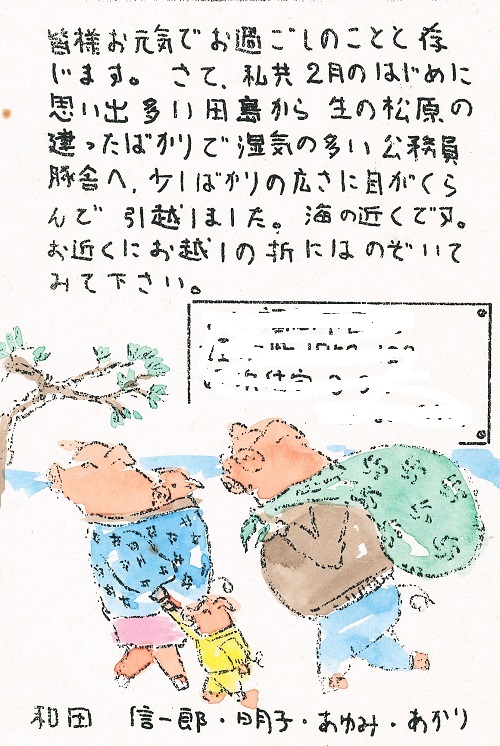 皆様お元気でお過ごしのことと存
じます。さて、私共2月のはじめに
思い出多い田島から生の松原の
建ったばかりで湿気の多い公務員
豚舎へ、少しばかりの広さに目がくら
んで引越しました。海の近くです。
お近くにお越しの折にはのぞいて
みて下さい。
和田 信一郎・明子・あゆみ・あかり